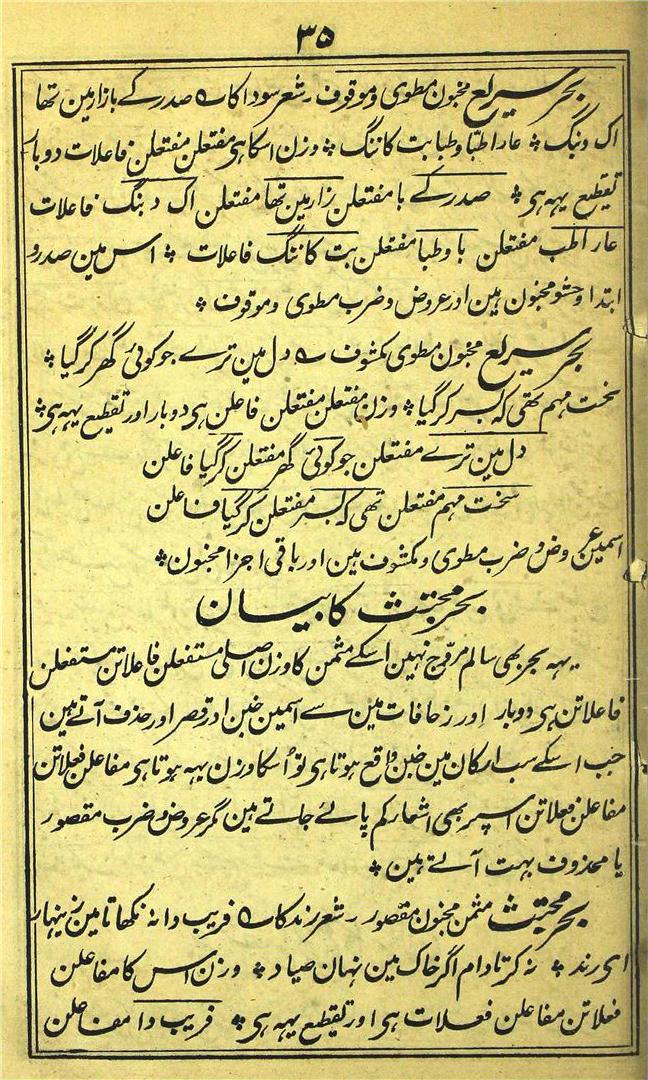 ۳۵
بحر سریع مخبون مطوی و موقوف۔ شعر سودا کا ؎ صدر کے بازار مین تھا
اک دبنگ ٭ عار اطبا و طبابت کا ننگ ٭ وزن اسکا ہی مفتعلن مفتعلن فاعلات دوبار
تقطیع یہہ ہی ٭ صدر کے با مفتعلن زار مین تھا مفتعلن اک دبنگ فاعلات
عار اطب مفتعلن با و طبا مفتعلن بت کا ننگ فاعلات ٭ اس مین صدر و
ابتدا و حشو مخبون ہین اور عروض و ضرب مطوی و موقوف ٭
بحر سریع مخبون مطوی مکشوف ؎ دل مین ترے جو کوئی گھر کر گیا ٭
سخت مہم تھی کہ بسر کر گیا ٭ وزن مفتعلن مفتعلن فاعلن ہی دوبار اور تقطیع یہہ ہی ٭
دل مین ترے مفتعلن جو کوئی گھر مفتعلن کر گیا فاعلن
سخت مہم مفتعلن تھی کہ بسر مفتعلن کر گیا فاعلن
اسمین عروض و ضرب مطوی و مکشوف ہین اور باقی اجزا مخبون ٭
بحر مجتث کا بیان
یہہ بحر بھی سالم مروّج نہین اسکے مثمن کا وزن اصلی مستفعلن فاعلاتن مستفعلن
فاعلاتن ہی دوبار اور زحافات مین سے اسمین خبن اور قصر اور حذف آتے ہین
جب اسکے سب ارکان مین خبن واقع ہوتا ہی تو اُسکا وزن یہہ ہوتا ہی مفاعلن فعلاتن
مفاعلن فعلاتن اسپر بھی اشعار کم پائے جاتے ہین مگر عروض و ضرب مقصور
یا محذوف بہت آتے ہین ٭
بحر مجتث مثمن مخبون مقصور۔ شعر رند کا ؎ فریب دانہ نکھاتا مین زینہار
ای رند ٭ نہ کرتا دام اگر خاک مین نہان صیاد ٭ وزن اس کا مفاعلن
فعلاتن مفاعلن فعلات ہی اور تقطیع یہہ ہی ٭ فریب دا مفاعلن